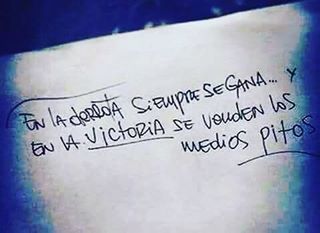 EN LA derrota SIEMPRE SE GANA... y
EN LA VICTORIA SE VENDEN LOS
MEDIOS PITOS